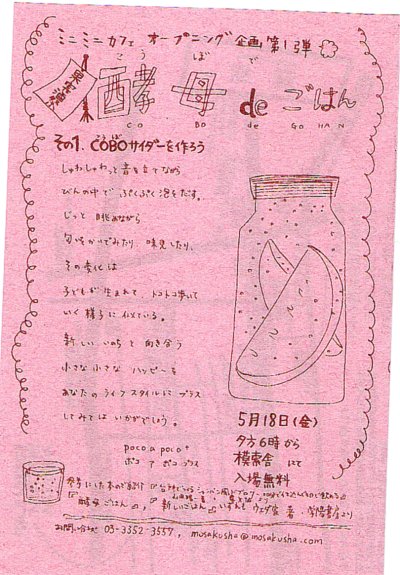 ミニミニカフェ オープニング企画第1弾
こうぼで
酵母 de ごはん
CO BO de GOHAN
その1. COBOサイダーを作ろう
こうぼ
しゅわしゅわっと音を立てながら
びんの中で ぷくぷく泡をだす。
じっと眺めながら
匂いをかいでみたり、味見したり、
その変化は
子どもが生まれて、トコトコ歩いて
いく様子に似ている。
新しいいのちと向き合う
小さな小さなハッピーを
あなたのライフスタイルにプラス
してみてはいかがでしょう。
poco a poco+
ポコ ア ポコ プラス
5月18日(金)
夕方6時から
模索舎にて
入場無料
参考にした本のご紹介
『酵母ごはん』, 『新しいごはん』いずれもウエダ家 著・学陽書房より
お問い合わせ 03-3352-3557, mosakusha@mosakusha.com